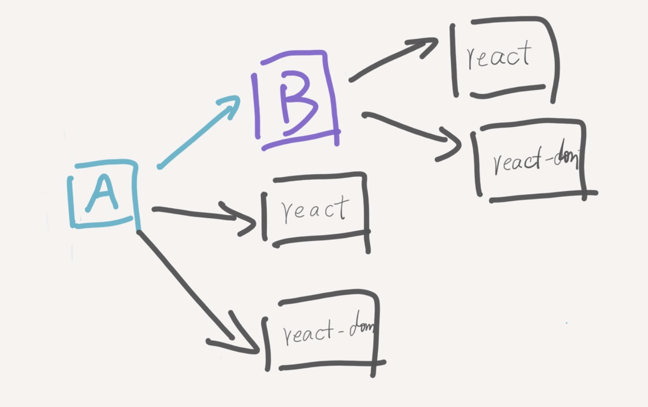 react
B
react-dom
A
react
react-dom